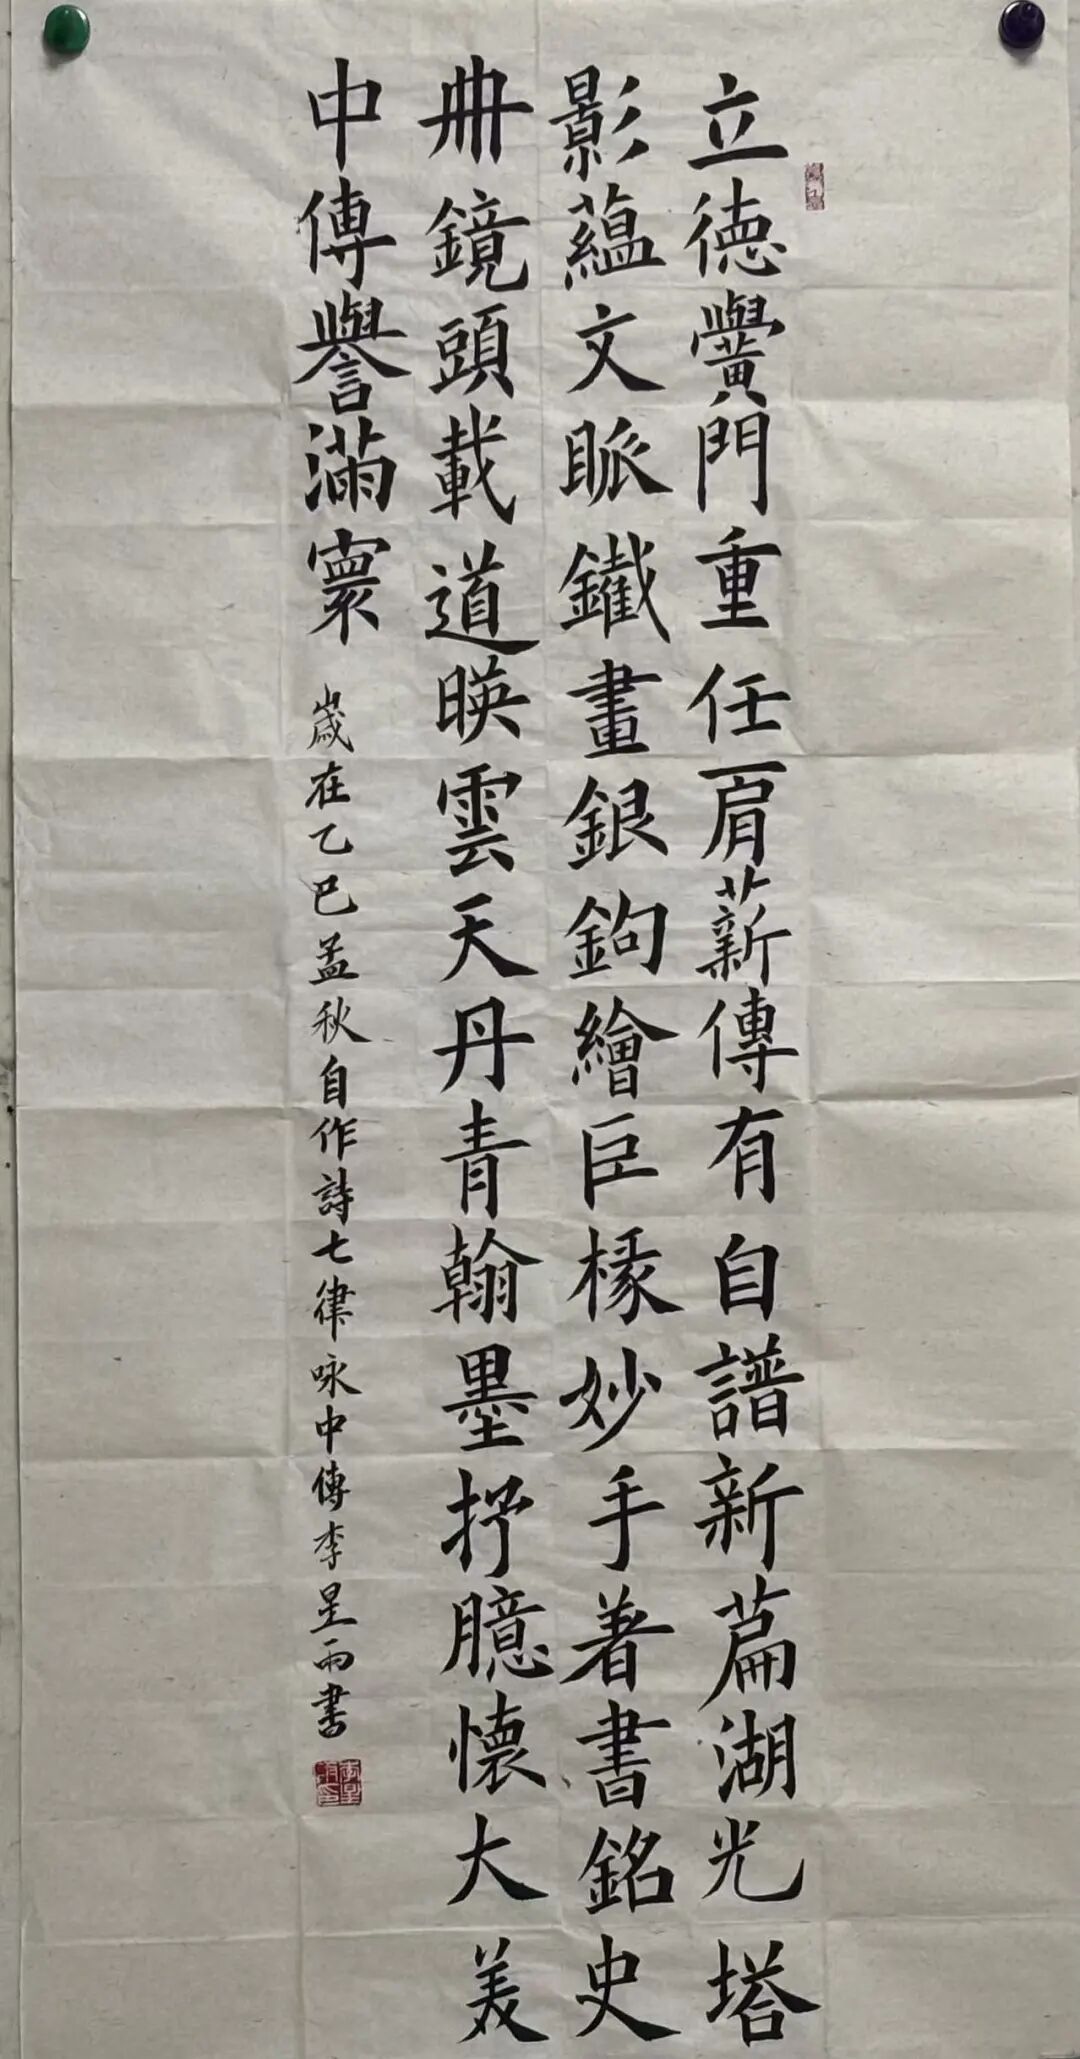 立德黌門重任肩薪傳有自譜新篇湖光塔
影蘊文脈鐵畫銀鉤繪巨椽妙手著書銘史
冊鏡頭載道暎雲天丹青翰墨抒臆懷大美
中傳譽滿寰
歲在乙巳孟秋自作詩七律咏中傳李星雨書